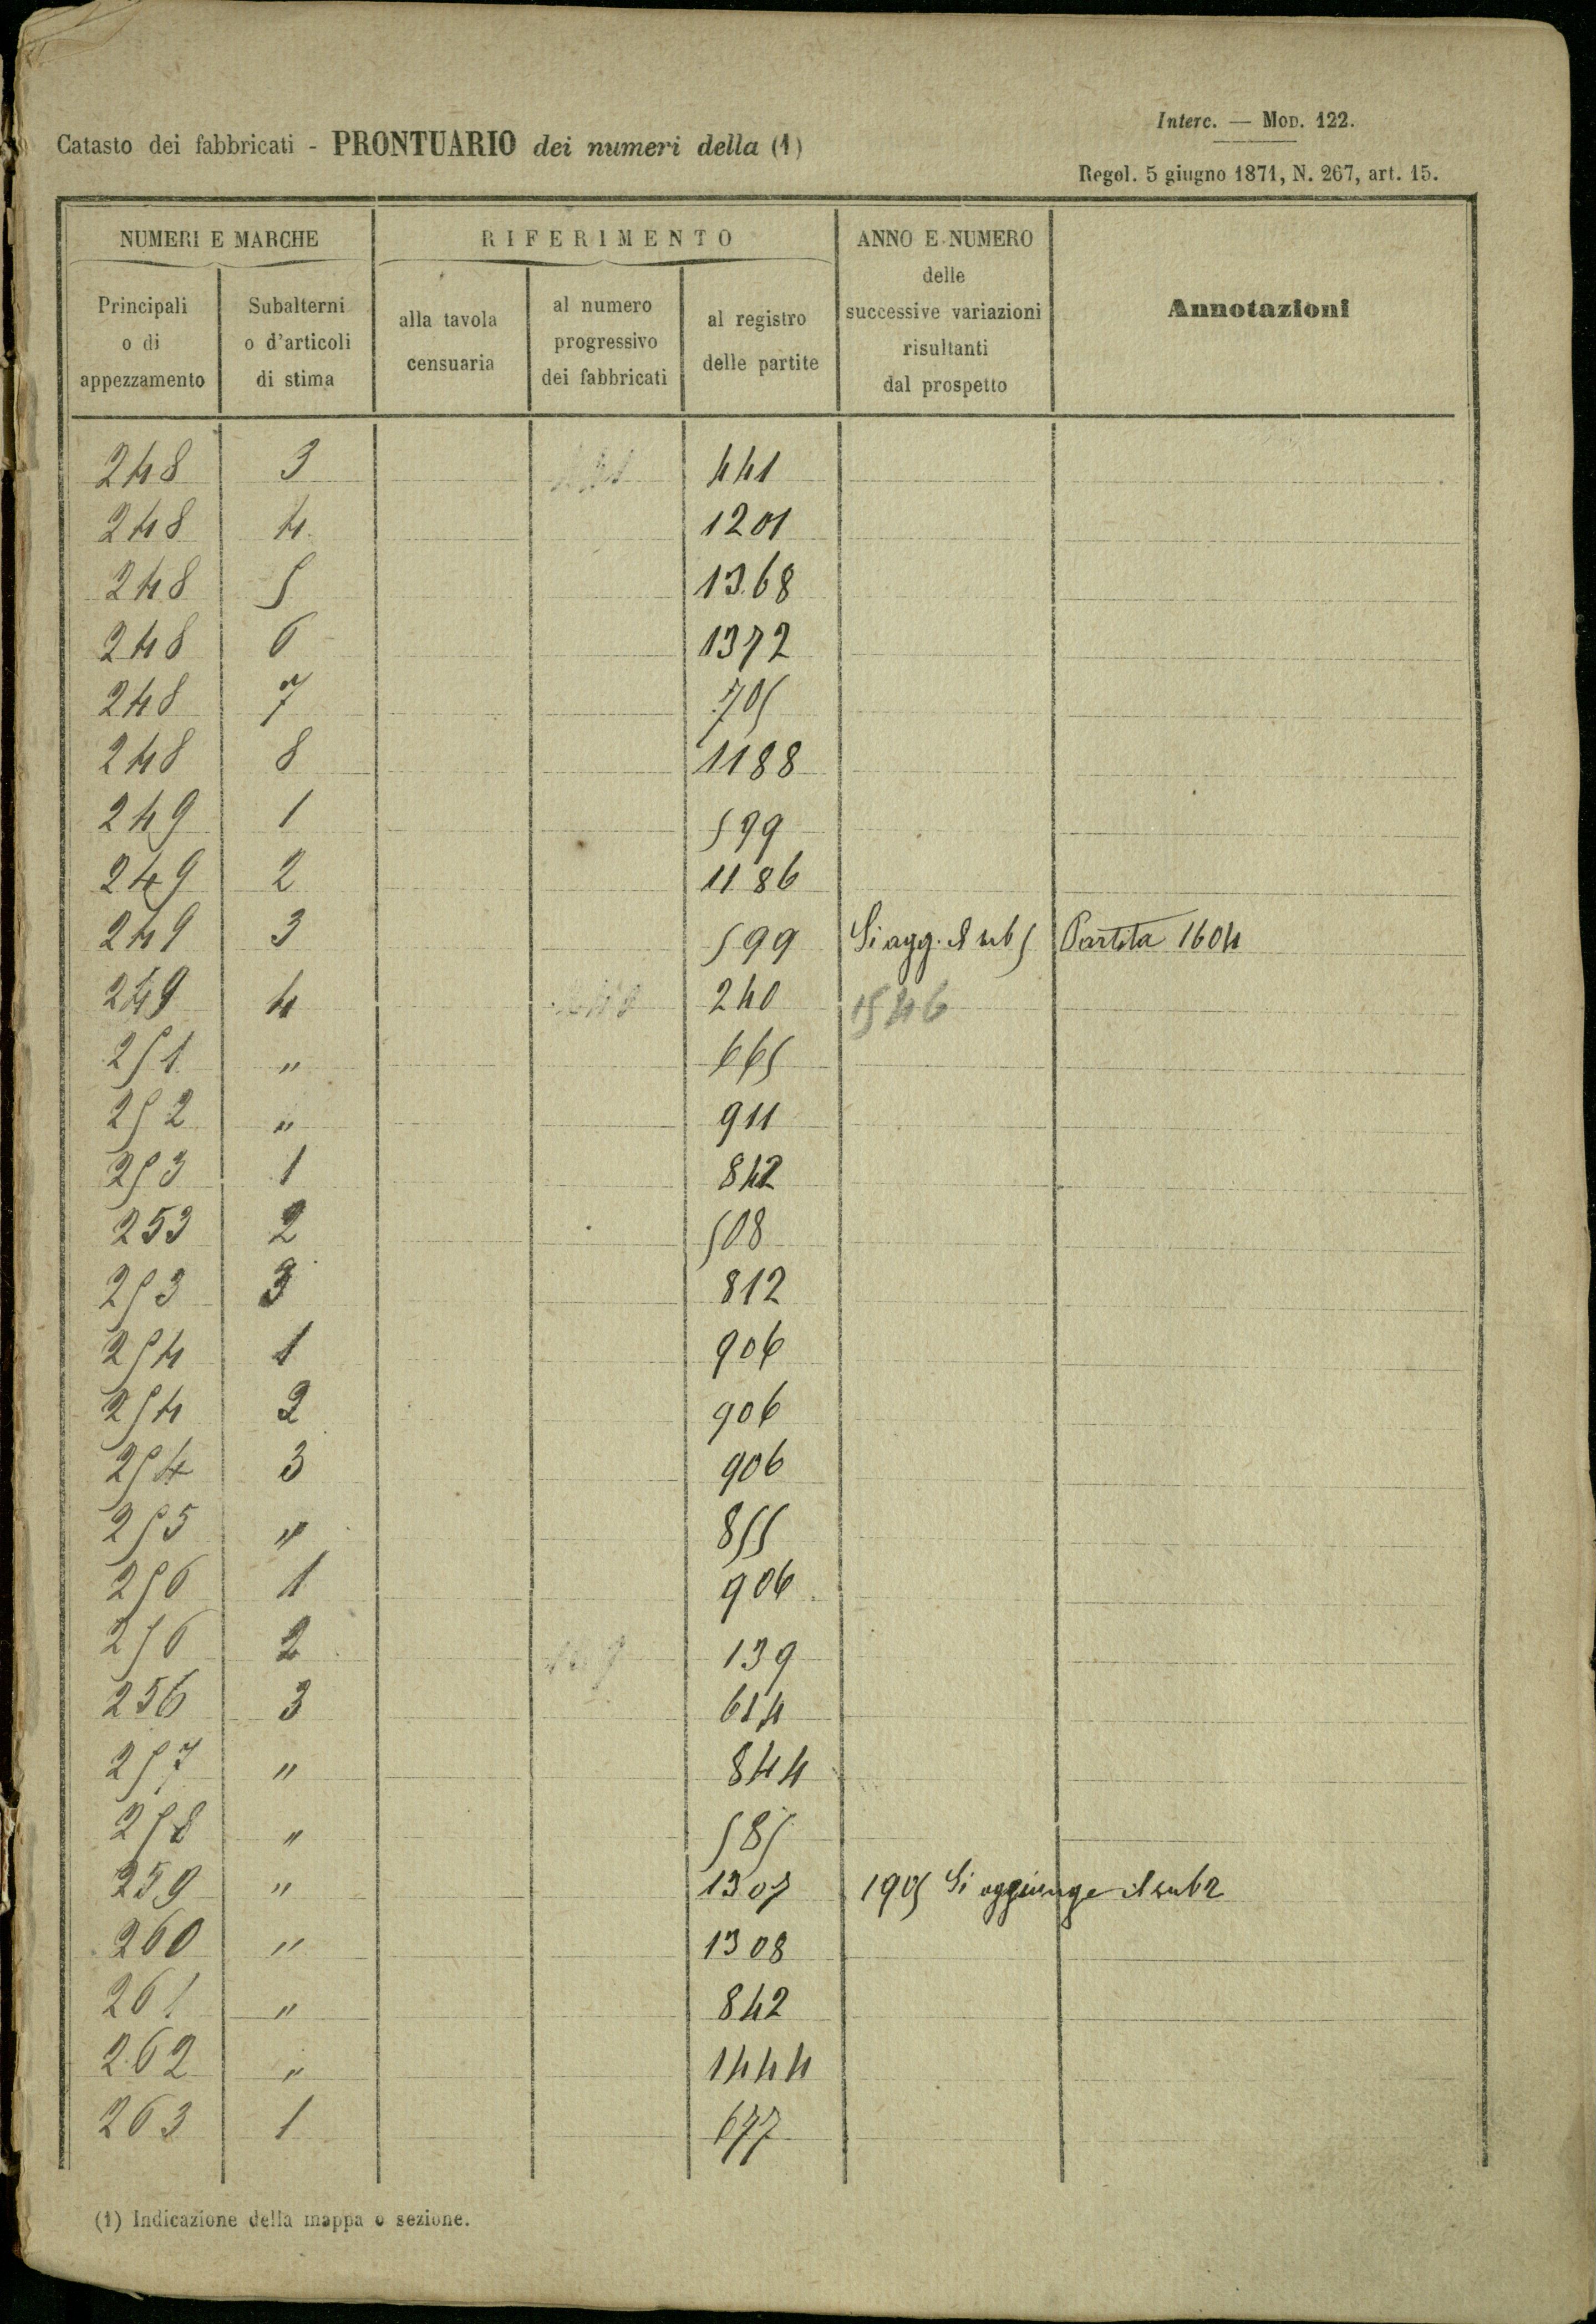 Interc. — Mod. 122.
Catasto dei fabbricati - PRONTUARIO dei numeri della (1)
Regol. 5 giugno 1871, N. 267, art. 15.
NUMERI E MARCHE RIFERIMENTO ANNO E NUMERO delle successive variazioni risultanti dal prospetto Annotazioni
Principali o di appezzamento Subalterni o d'articoli di stima alla tavola censuaria al numero progressivo dei fabbricati al registro delle partite
248 3 441
248 4 1201
248 5 1368
248 6 1372
248 7 705
248 8 1188
249 1 599
249 2 1186
249 3 599 Si agg. il sub 5 Partita 1604
249 4 240 1546
251 " 665
252 " 911
253 1 842
253 2 508
253 3 812
254 1 906
254 2 906
254 3 906
255 " 855
256 1 906
256 2 139
256 3 614
257 " 844
258 " 585
259 " 1307 1905 Si aggiunge il sub 2
260 " 1308
261 " 842
262 " 1444
263 1 677
(1) Indicazione della mappa o sezione.